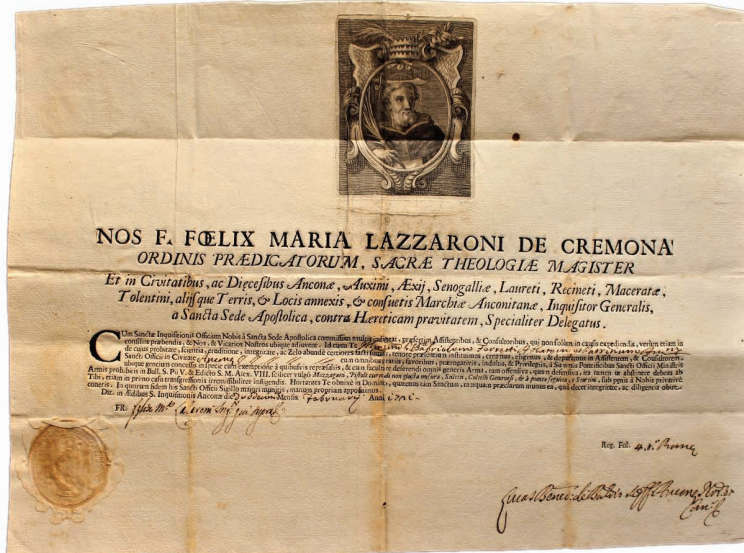 NOS F. FŒLIX MARIA LAZZARONI DE CREMONA
ORDINIS PRÆDICATORUM, SACRÆ THEOLOGIÆ MAGISTER
Et in Civitatibus, ac Diœcesibus Anconæ, Auximi, Æxij, Senogalliæ, Laureti, Recineti, Maceratæ,
Tolentini, alijsque Terris, & Locis annexis, & consuetis Marchiæ Anconitanæ, Inquisitor Generalis,
à Sancta Sede Apostolica, contra Hæreticam pravitatem, Specialiter Delegatus.
CUm Sanctæ Inquisitionis Officium Nobis à Sancta Sede Apostolica commissum multis indigeat, præsertim Assistentibus, & Consultoribus, qui non solum in causis expediendis, verùm etiam in
consiliis præbendis, & Nos, & Vicarios Nostros ubique adjuvent. Id circo Te
de cujus probitate, scientia, eruditione, integritate, ac Zelo abundè certiores facti sumus, tenore præsentium instituimus, creamus,
Sancti Officii in Civitate Anconæ cum omnibus favoribus, gratiis, indultis, & Privilegiis, à Summis Pontificibus Sancti Officii Ministris
ubique gentium concessis, exemptione à quibusvis represaliis, & cum facultate deferendi omnis generis Arma, tam offensiva, quàm defensiva, ita tamen ut abstinere debeas ab
Armis prohibitis in Bull. S. Pij V. & Edicto S. M. Alex. VIII. scilicet
Tibi, etiam in primo casu transgressionis irremissibiliter infligendis. Hortantes Te obnixè in Domino, quatenus tam Sanctum, tamquam præclarum munus ea, qua decet integritate, ac diligentia obire
coneris. In quorum fidem his Sancti Officii Sigillo majori munitis, manum propriam apposuimus.
Dat. in Ædibus S. Inquisitionis Anconæ die Mensis Februarij Anni
FR. Felix M.a
Reg. Fol. 4
Lucas Bened. de Baldis S. Off. Anconæ Not.